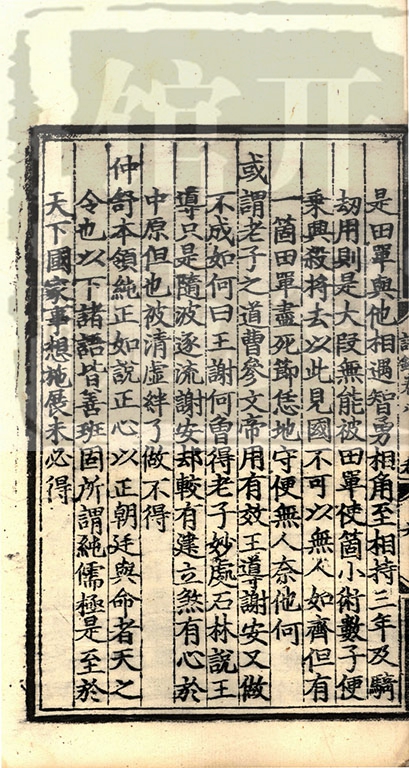 是田單與他相遇智勇相角至相持三年及騎
劫用則是大段無能被田單使箇小術數子便
乘興殺將去以此見國不可以無人如齊但有
一箇田單盡死節恁地守便無人奈他何
或謂老子之道曹參文帝用有效王導謝安又做
不成如何曰王謝何曾得老子妙處石林說王
導只是隨波逐流謝安却較有建立煞有心於
中原但也被清虛絆了做不得
仲舒本領純正如說正心以正朝廷與命者天之
令也以下諸語皆善班固所謂純儒極是至於
天下國家事想施展未必得